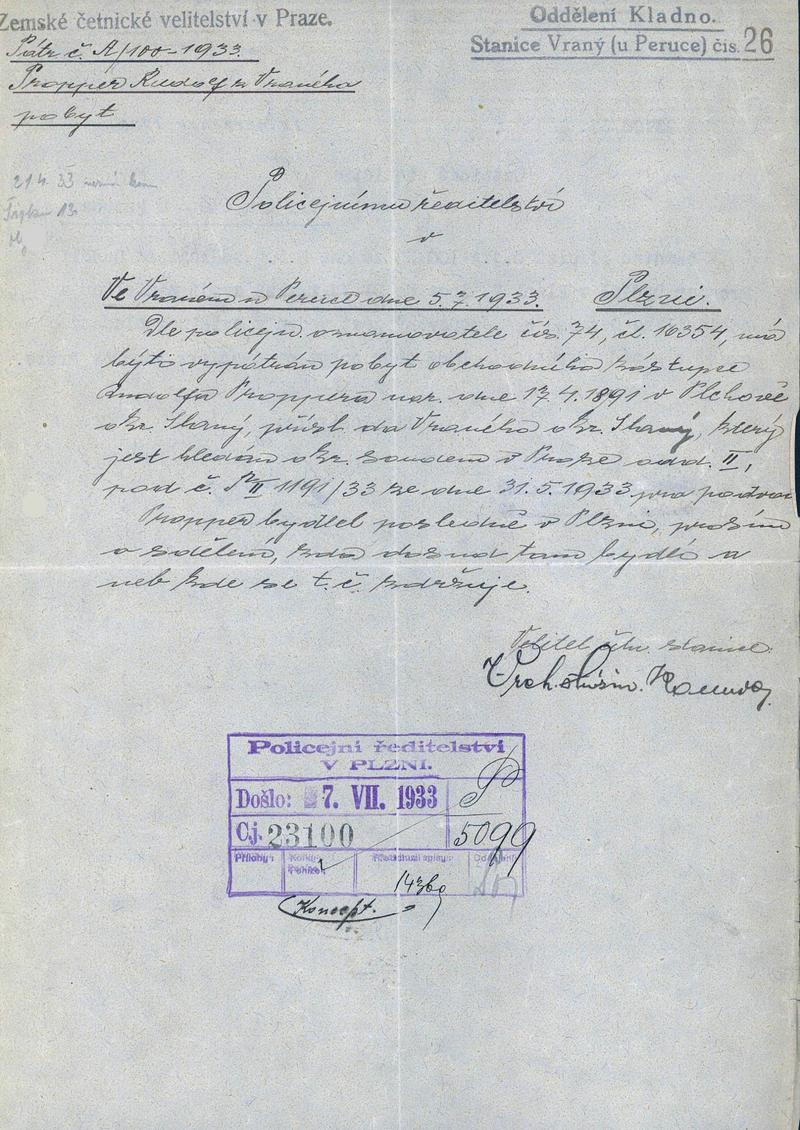 Zemské četnické velitelství v Praze.
Oddělení Kladno.
Stanice Vraný (u Peruce) čís. 26
Pátr. č. A/100-1933.
Propper Rudolf z Vraného
pobyt
21.4. 33
13.
Policejnímu ředitelství
v
Ve Vraném u Peruce dne 5.7.1933. Plzni.
Dle policejn. oznamovatele čís. 74, čl. 16354, má
býti vypátrán pobyt obchodního zástupce
Rudolfa Proppera nar. dne 17.4.1891 v Plchově
okr. Slaný, přísl. do Vraného okr. Slaný, který
jest hledán okr. soudem v Praze odd. II,
pod č. II 1191/33 ze dne 31.5.1933 pro podvod
Propper bydlel posledně v Plzni, prosím
o sdělení, zda dosud tam bydlí a
neb kde se t.č. zdržuje.
Velitel četn. stanice:
Vrch. strážm.
Policejní ředitelství
V PLZNI.
Došlo: 7. VII. 1933
P
Cj. 23100
5099
Přílohy:
14360
Koncept.